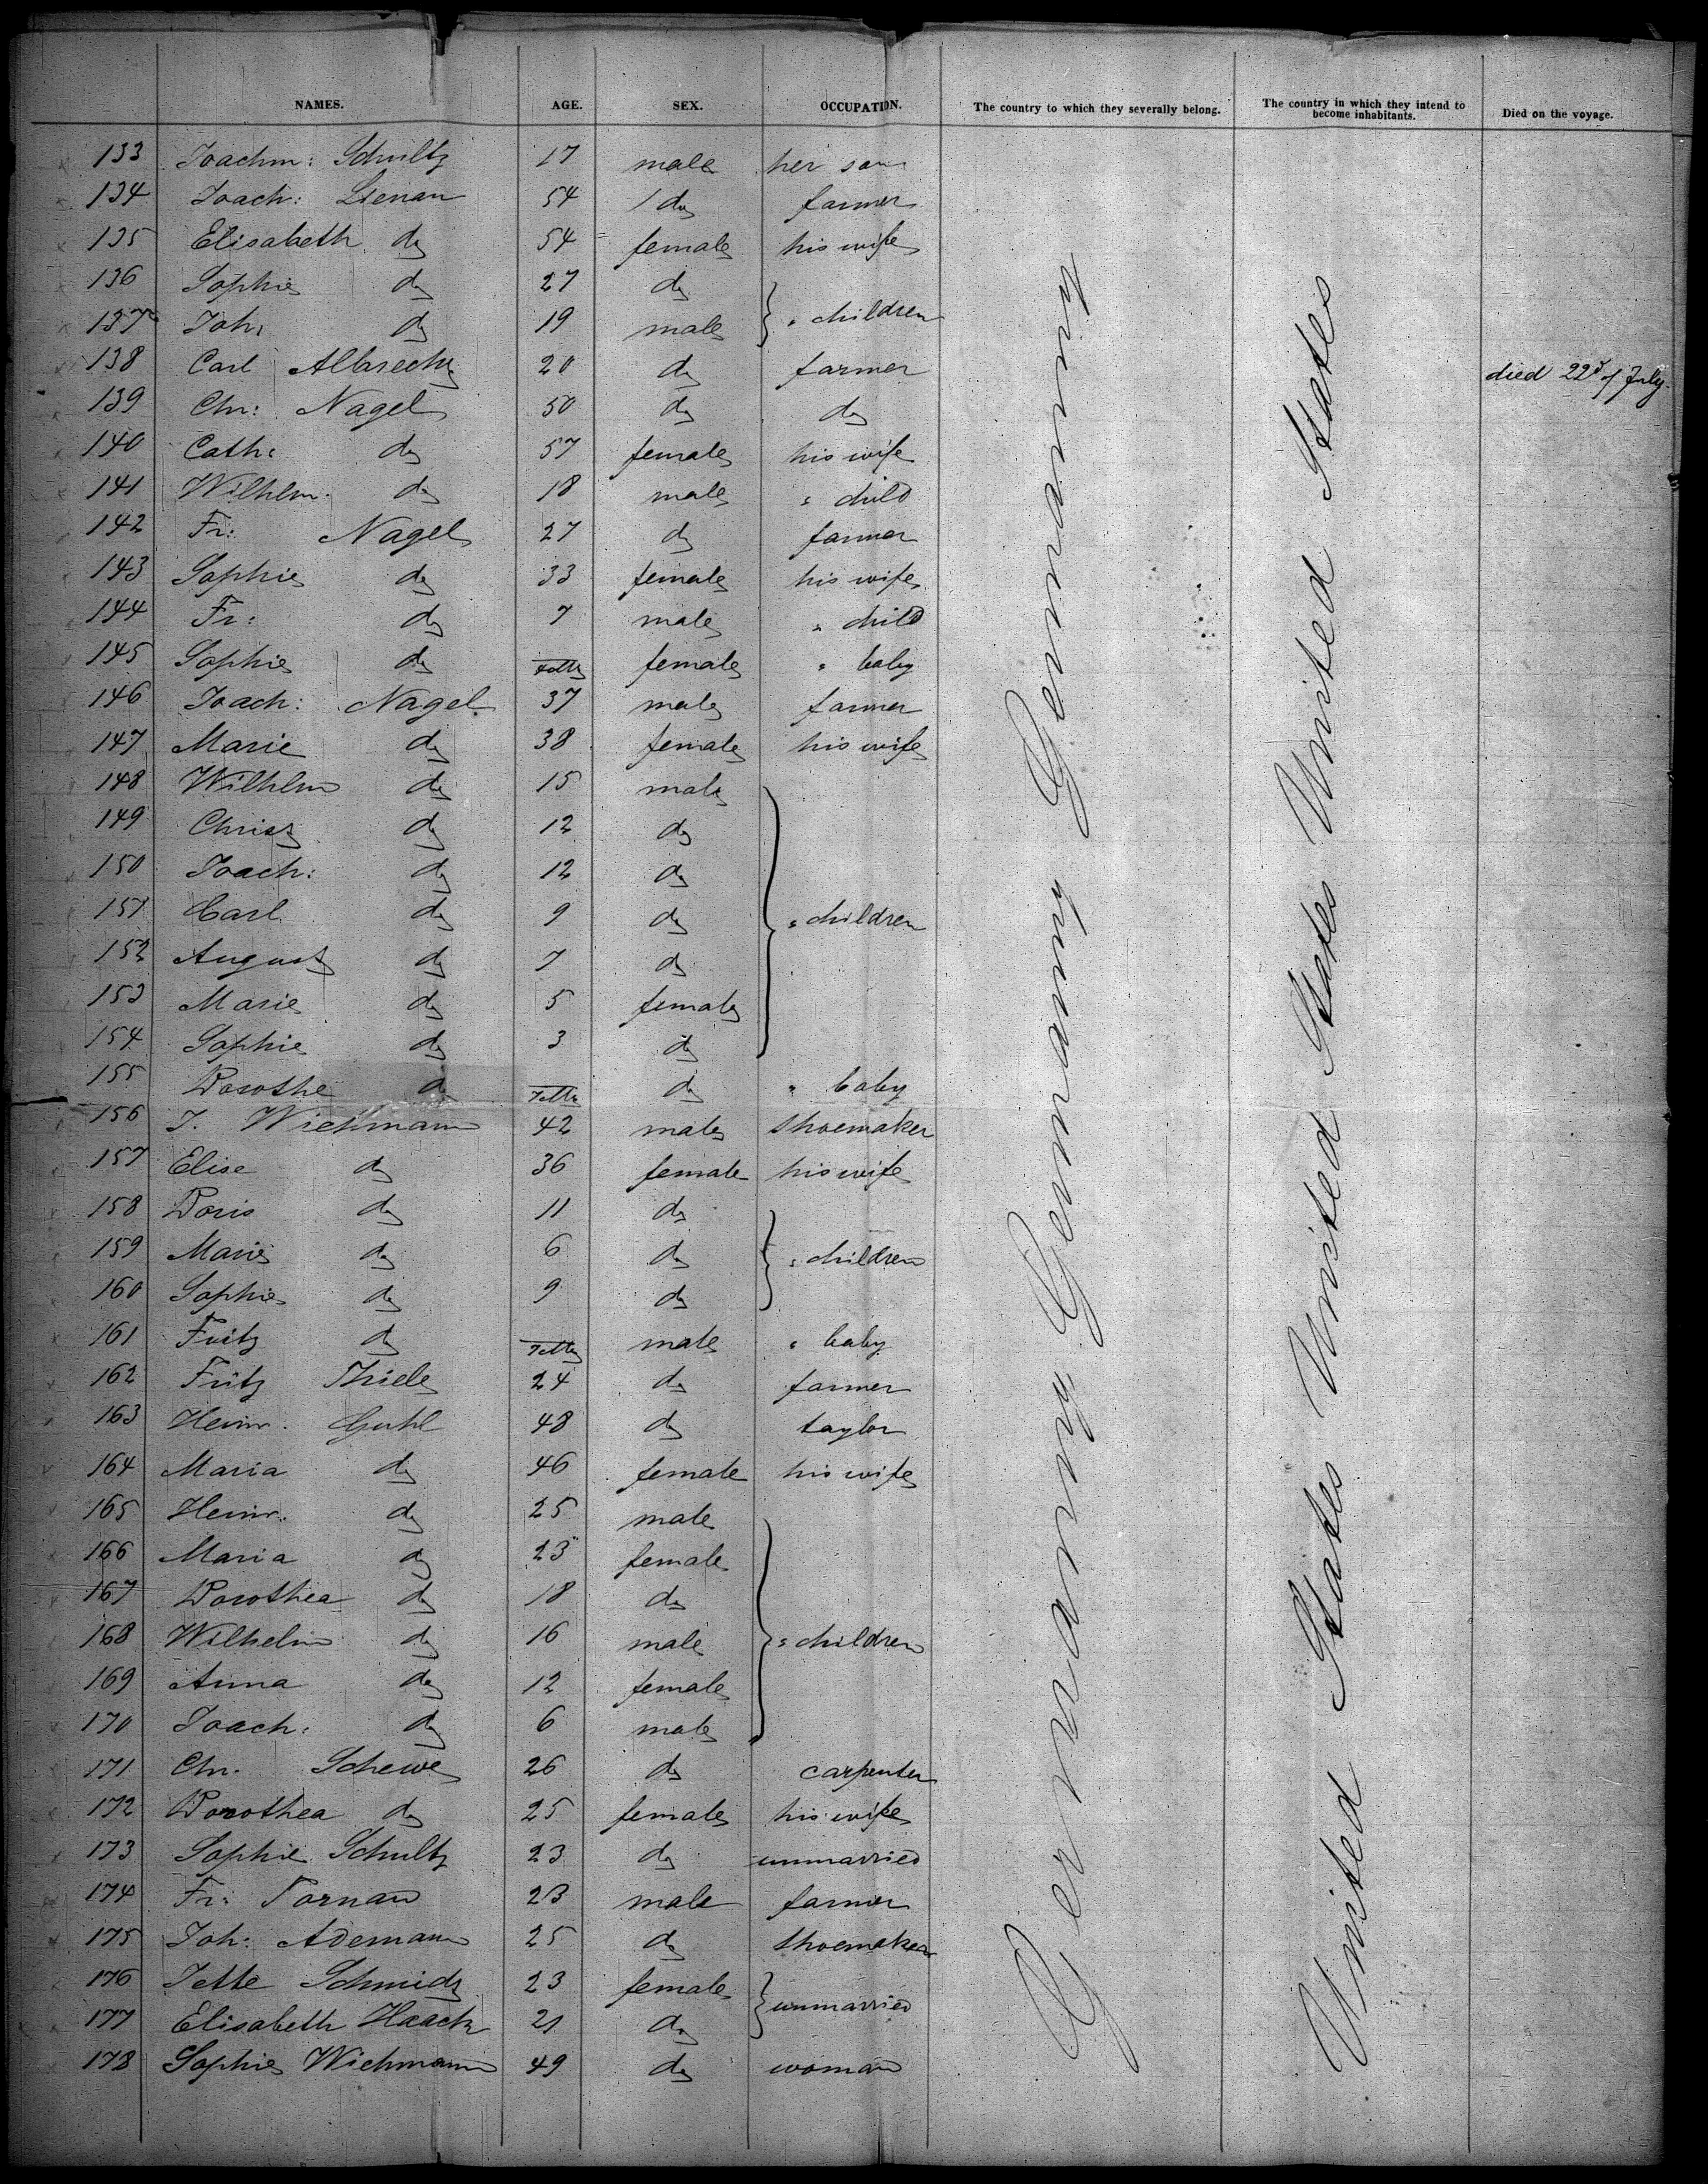 NAMES. AGE. SEX. OCCUPATION. The country to which they severally belong. The country in which they intend to become inhabitants. Died on the voyage.
133 Joachm: Schultz 17 male her son
134 Joach: Lienau 54 do farmer
135 Elisabeth do 54 female his wife
136 Sophie do 27 do
137 Joh: do 19 male " children
138 Carl Albrecht 20 do farmer died 22d of July.
139 Chr: Nagel 50 do do
140 Cath: do 57 female his wife
141 Wilhlm. do 18 male " child
142 Fr: Nagel 27 do farmer
143 Sophie do 33 female his wife
144 Fr: do 7 male " child
145 Sophie do female " baby
146 Joach: Nagel 37 male farmer
147 Marie do 38 female his wife
148 Wilhlm do 15 male
149 Christ do 12 do
150 Joach: do 12 do
151 Carl do 9 do " children
152 August do 7 do
153 Marie do 5 female
154 Sophie do 3 do
155 Dorothe do do " baby
156 J. Wichmann 42 male shoemaker
157 Elise do 36 female his wife
158 Doris do 11 do
159 Marie do 6 do " children
160 Sophie do 9 do
161 Fritz do male " baby
162 Fritz Thiele 24 do farmer
163 Heinr. Guhl 48 do taylor
164 Maria do 46 female his wife
165 Heinr. do 25 male
166 Maria do 23 female
167 Dorothea do 18 do
168 Wilhelm do 16 male " children
169 Anna do 12 female
170 Joach: do 6 male
171 Chr. Schewe 26 do carpenter
172 Dorothea do 25 female his wife
173 Sophie Schultz 23 do unmarried
174 Fr: Tornau 23 male farmer
175 Joh: Ademann 25 do shoemaker
176 Jette Schmidt 23 female
177 Elisabeth Haack 21 do unmarried
178 Sophie Wichmann 49 do woman
Germany Germany Germany
United States United States United States